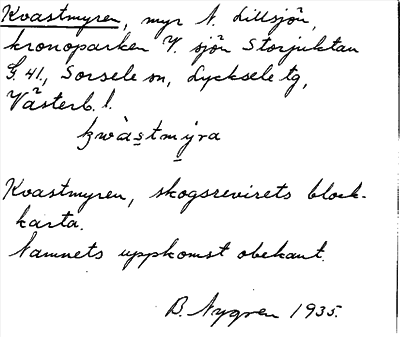 Kvastmyren, myr N. Lillsjön,
kronoparken V. sjön Storjuktan
G. 41, Sorsele sn, Lycksele tg,
Västerb. l.
kwàstmýra
Kvastmyren, skogsrevirets block-
karta.
Namnets uppkomst obekant.
B. Nygren 1935.